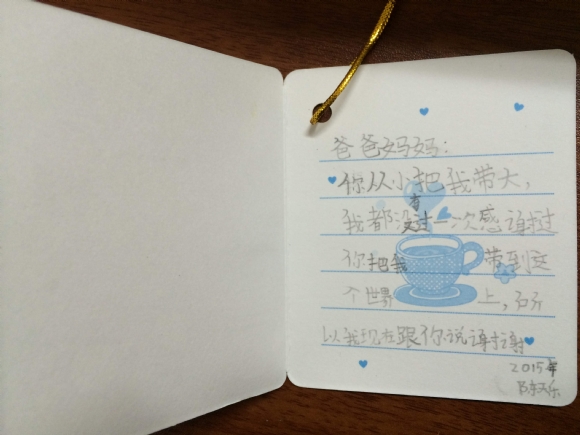 爸爸妈妈:
你从小把我带大,
我都没有过一次感谢过
你把我带到这
个世界上,所
以我现在跟你说谢谢
2015年
陈天乐